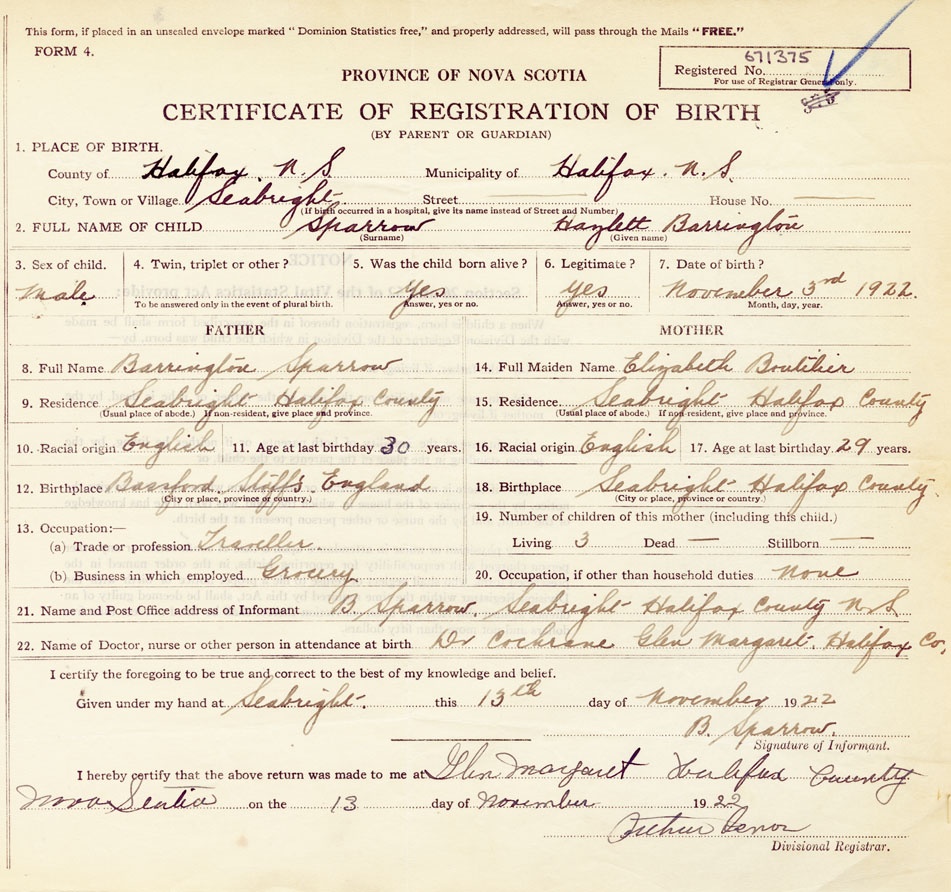 This form, if placed in an unsealed envelope marked "Dominion Statistics free," and properly addressed, will pass through the Mails "FREE."
FORM 4.
671375
Registered No.
For use of Registrar General only.
PROVINCE OF NOVA SCOTIA
CERTIFICATE OF REGISTRATION OF BIRTH
(BY PARENT OR GUARDIAN)
1. PLACE OF BIRTH.
County of Halifax. N. S. Municipality of Halifax. N. S.
City, Town or Village. Seabright Street House No.
(If birth occurred in a hospital, give its name instead of Street and Number)
2. FULL NAME OF CHILD Sparrow Hazlett Barrington
(Surname) (Given name)
3. Sex of child. 4. Twin, triplet or other? 5. Was the child born alive? 6. Legitimate? 7. Date of birth?
Male Yes Yes November 3rd 1922.
To be answered only in the event of plural birth. Answer, yes or no. Answer, yes or no. Month, day, year.
FATHER MOTHER
8. Full Name Barrington Sparrow 14. Full Maiden Name Elizabeth Boutilier
9. Residence Seabright Halifax County 15. Residence. Seabright Halifax County
(Usual place of abode.) If non-resident, give place and province. (Usual place of abode.) If non-resident, give place and province.
10. Racial origin English 11. Age at last birthday 30 years. 16. Racial origin English 17. Age at last birthday 29 years.
12. Birthplace Staffs England 18. Birthplace Seabright Halifax County.
(City or place, province or country.) (City or place, province or country.)
13. Occupation:— 19. Number of children of this mother (including this child.)
(a) Trade or profession Traveller. Living 3 Dead — Stillborn —
(b) Business in which employed Grocery 20. Occupation, if other than household duties None
21. Name and Post Office address of Informant B. Sparrow, Seabright Halifax County N.S
22. Name of Doctor, nurse or other person in attendance at birth Dr Cochrane Glen Margaret. Halifax Co.
I certify the foregoing to be true and correct to the best of my knowledge and belief.
Given under my hand at Seabright. this 13th day of November 1922
B. Sparrow.
Signature of Informant.
I hereby certify that the above return was made to me at Glen Margaret Halifax County
Nova Scotia on the 13 day of November 1922
Arthur
Divisional Registrar.